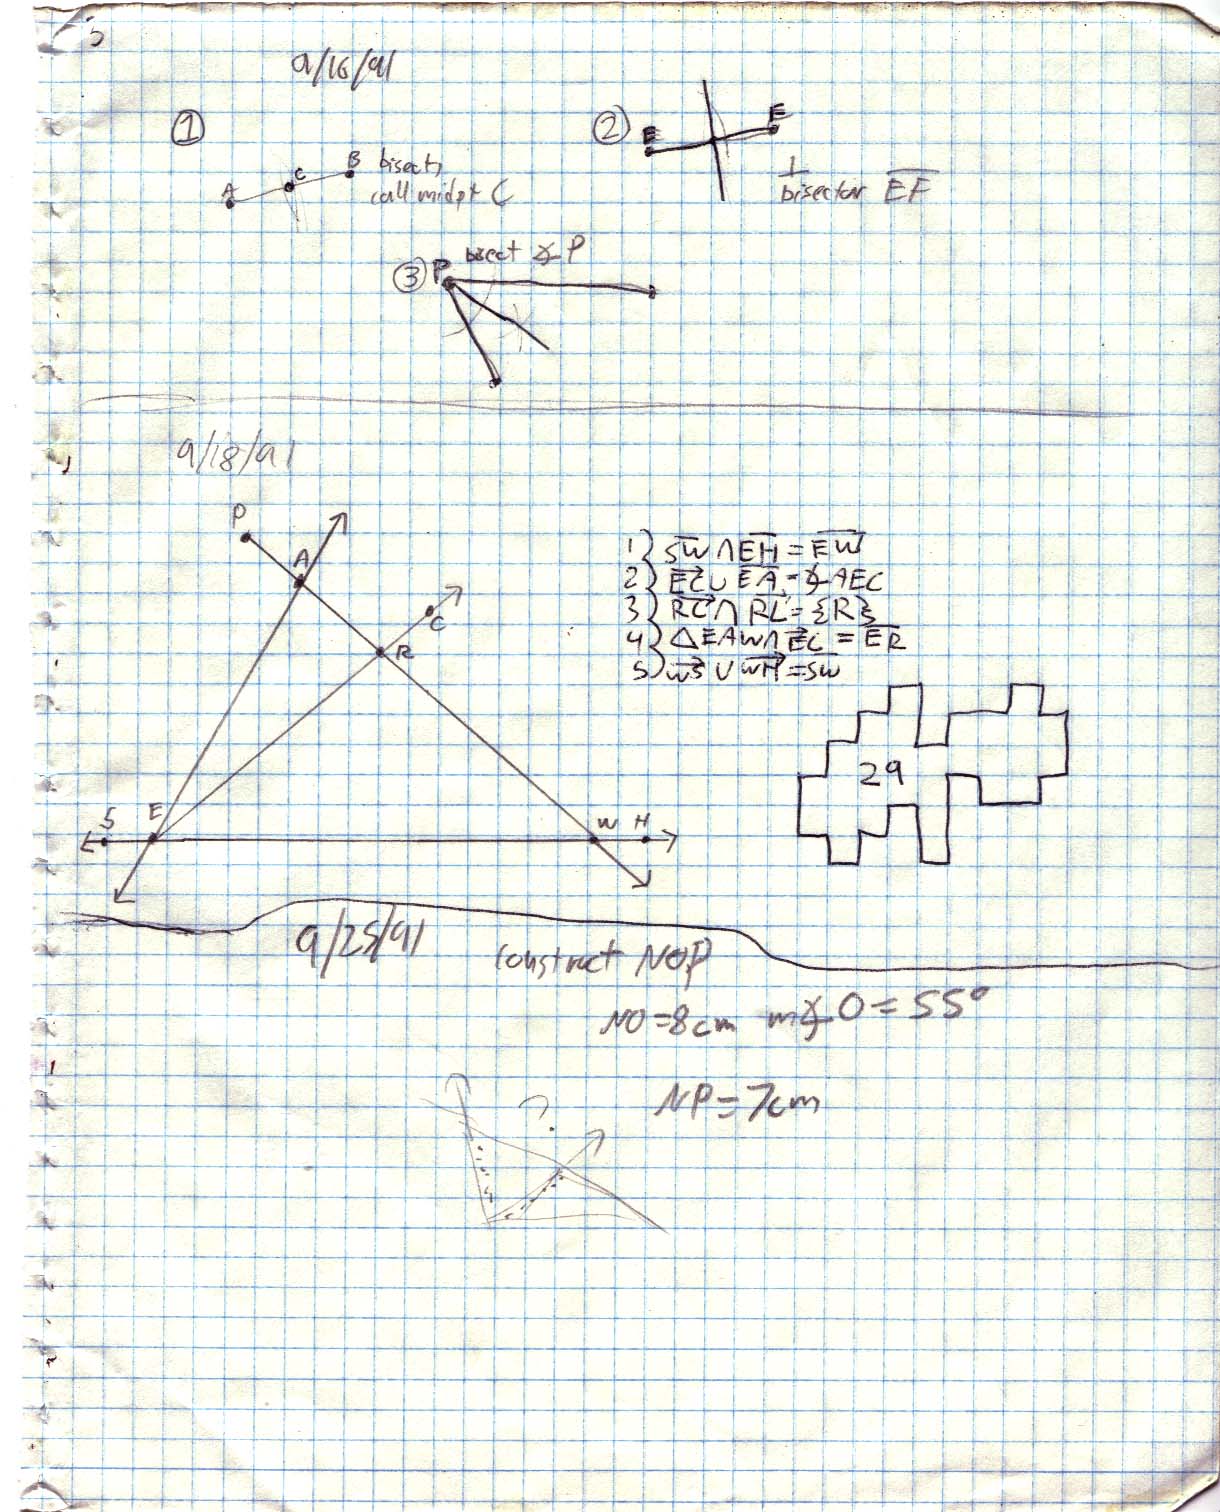 5
9/16/91
①
A C B bisect,
call midpt C
② E F
⊥
bisector EF
③ P bisect ∡ P
9/18/91
P
A
C
R
S E W H
1) SW ∩ EH = EW
2) EC ∪ EA = ∡ AEC
3) RC ∩ RL = {R}
4) △EAW ∩ EC = ER
5) WS ∪ WH = SW
29
9/25/91
construct NOP
NO = 8cm m∡O = 55°
NP = 7cm
?